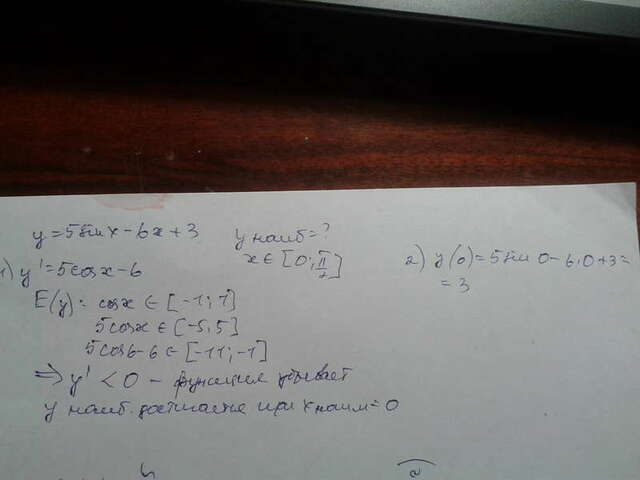 y = 5 sin x - 6x + 3
y наиб = ?
x ∈ [0; π/2]
1) y' = 5 cos x - 6
E(y): cos x ∈ [-1; 1]
5 cos x ∈ [-5; 5]
5 cos 6 - 6 ∈ [-11; -1]
⇒ y' < 0 - функция убывает
y наиб. достигается при x наим = 0
2) y(0) = 5 sin 0 - 6·0 + 3 =
= 3